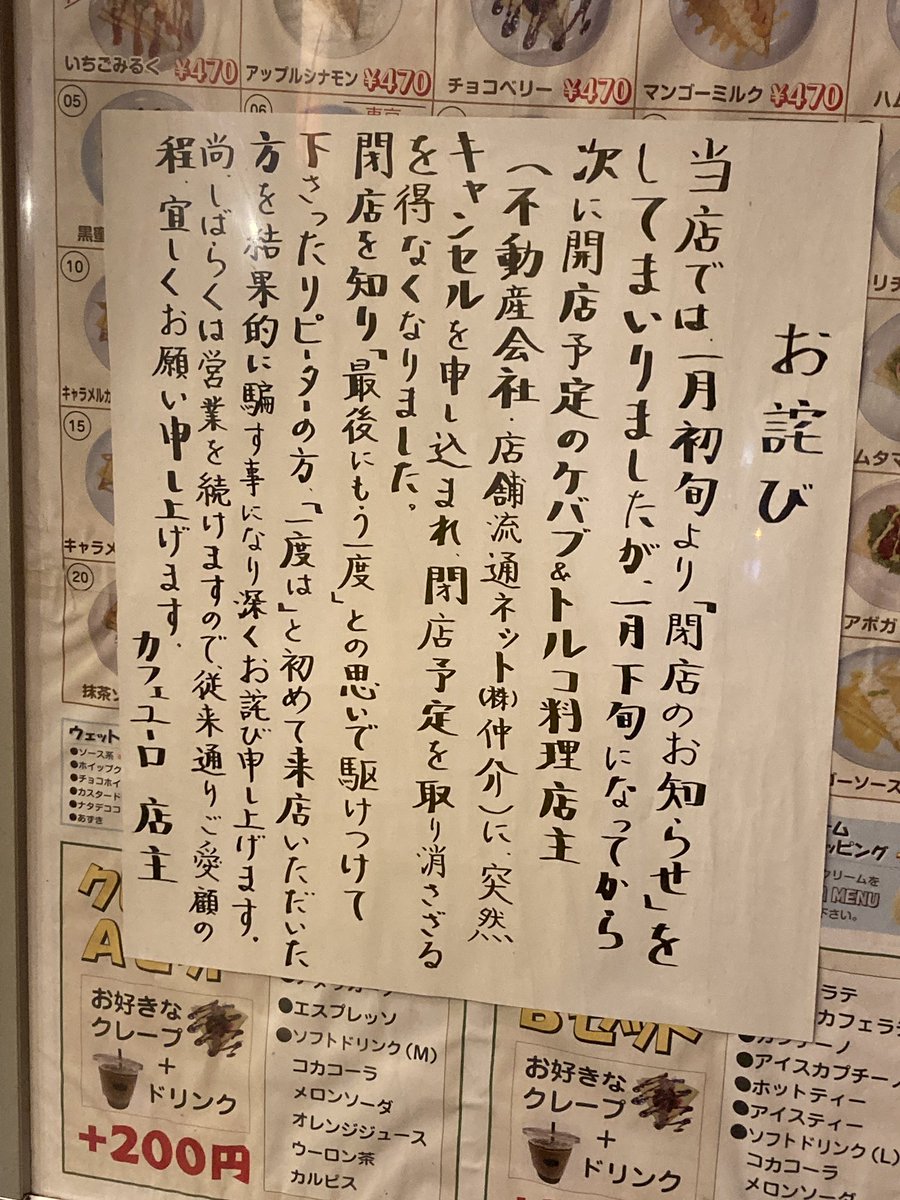 いちごみるく ¥470
アップルシナモン ¥470
チョコベリー ¥470
マンゴーミルク ¥470
ハム
05
06
10
15
20
キャラメルカ
キャラメ
抹茶ソ
お詫び
当店では、一月初旬より「閉店のお知らせ」を
してまいりましたが、一月下旬になってから
次に開店予定のケバブ&トルコ料理店主
(不動産会社・店舗流通ネット(株)仲介)に、突然
キャンセルを申し込まれ、閉店予定を取り消さざる
を得なくなりました。
閉店を知り「最後にもう一度」との思いで駆けつけて
下さったリピーターの方、「一度は」と初めて来店いただいた
方を結果的に騙す事になり深くお詫び申し上げます。
尚、しばらくは営業を続けますので、従来通りご愛顧の
程、宜しくお願い申し上げます。
カフェユーロ 店主
リチ
ムタマ
アボガ
ゴーソース
ウェット
●ソース系
●ホイップク
●チョコホイ
●カスタード
●ナタデココ
●あずき
ーム
ッピング
クリームを
MENU
下さい。
お好きな
クレープ
+
ドリンク
+200円
●エスプレッソ
●ソフトドリンク(M)
コカコーラ
メロンソーダ
オレンジジュース
ウーロン茶
カルピス
Bセット
お好きな
クレープ
+
ドリンク
ラテ
カフェラテ
●カプチーノ
●アイスカプチーノ
●ホットティー
●アイスティー
●ソフトドリンク(L)
コカコーラ
メロンソーダ